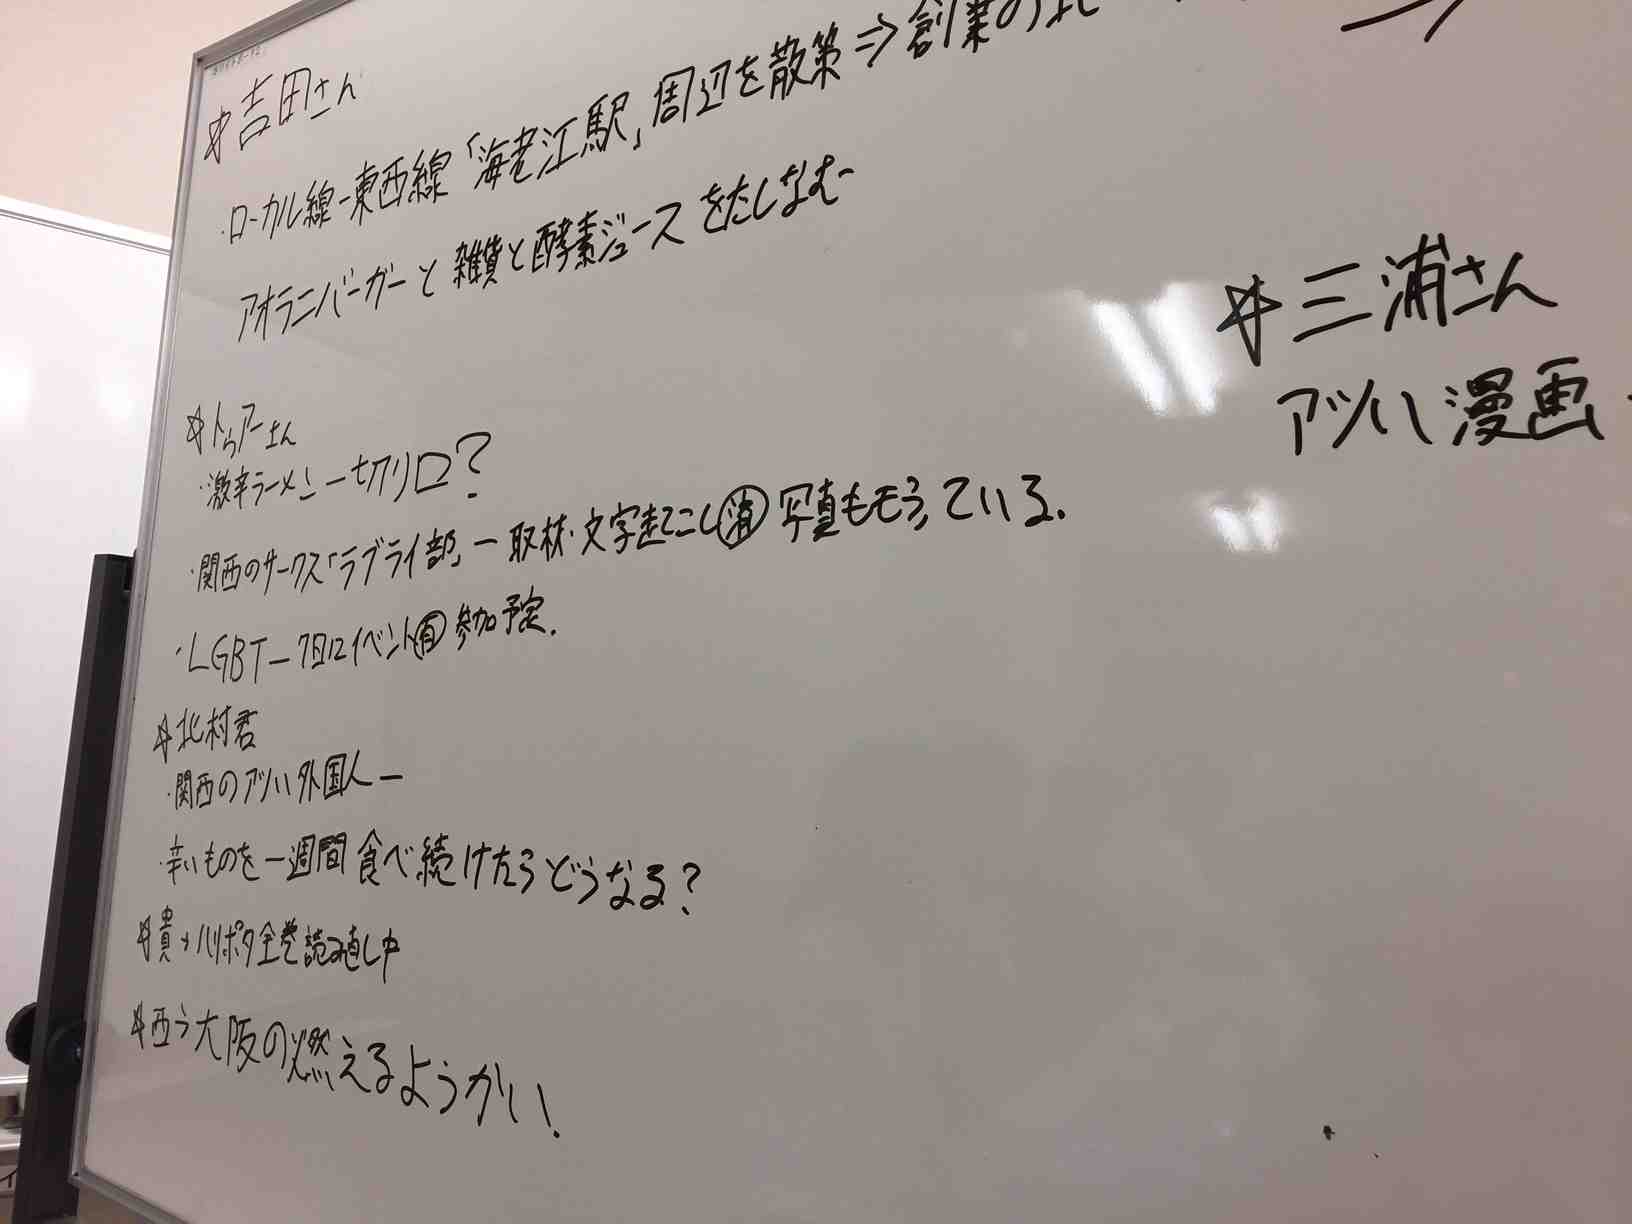 ☆吉田さん
・ローカル線ー東西線「海老江駅」周辺を散策⇒創業の地
アオラニバーガーと雑貨と酵素ジュースをたしなむー
☆三浦さん
アツい漫画
☆トゥアーさん
・激辛ラーメンー切り口?
・関西のサークス「ラブライ部」ー取材・文字起こし㊡写真ももらっている.
・LGBTー7日にイベント㊒参加予定.
☆北村君
・関西のアツい外国人ー
・辛いものを一週間食べ続けたらどうなる?
☆貴→ハリポタ全巻読み直し中
☆西→大阪の燃えるようかい!